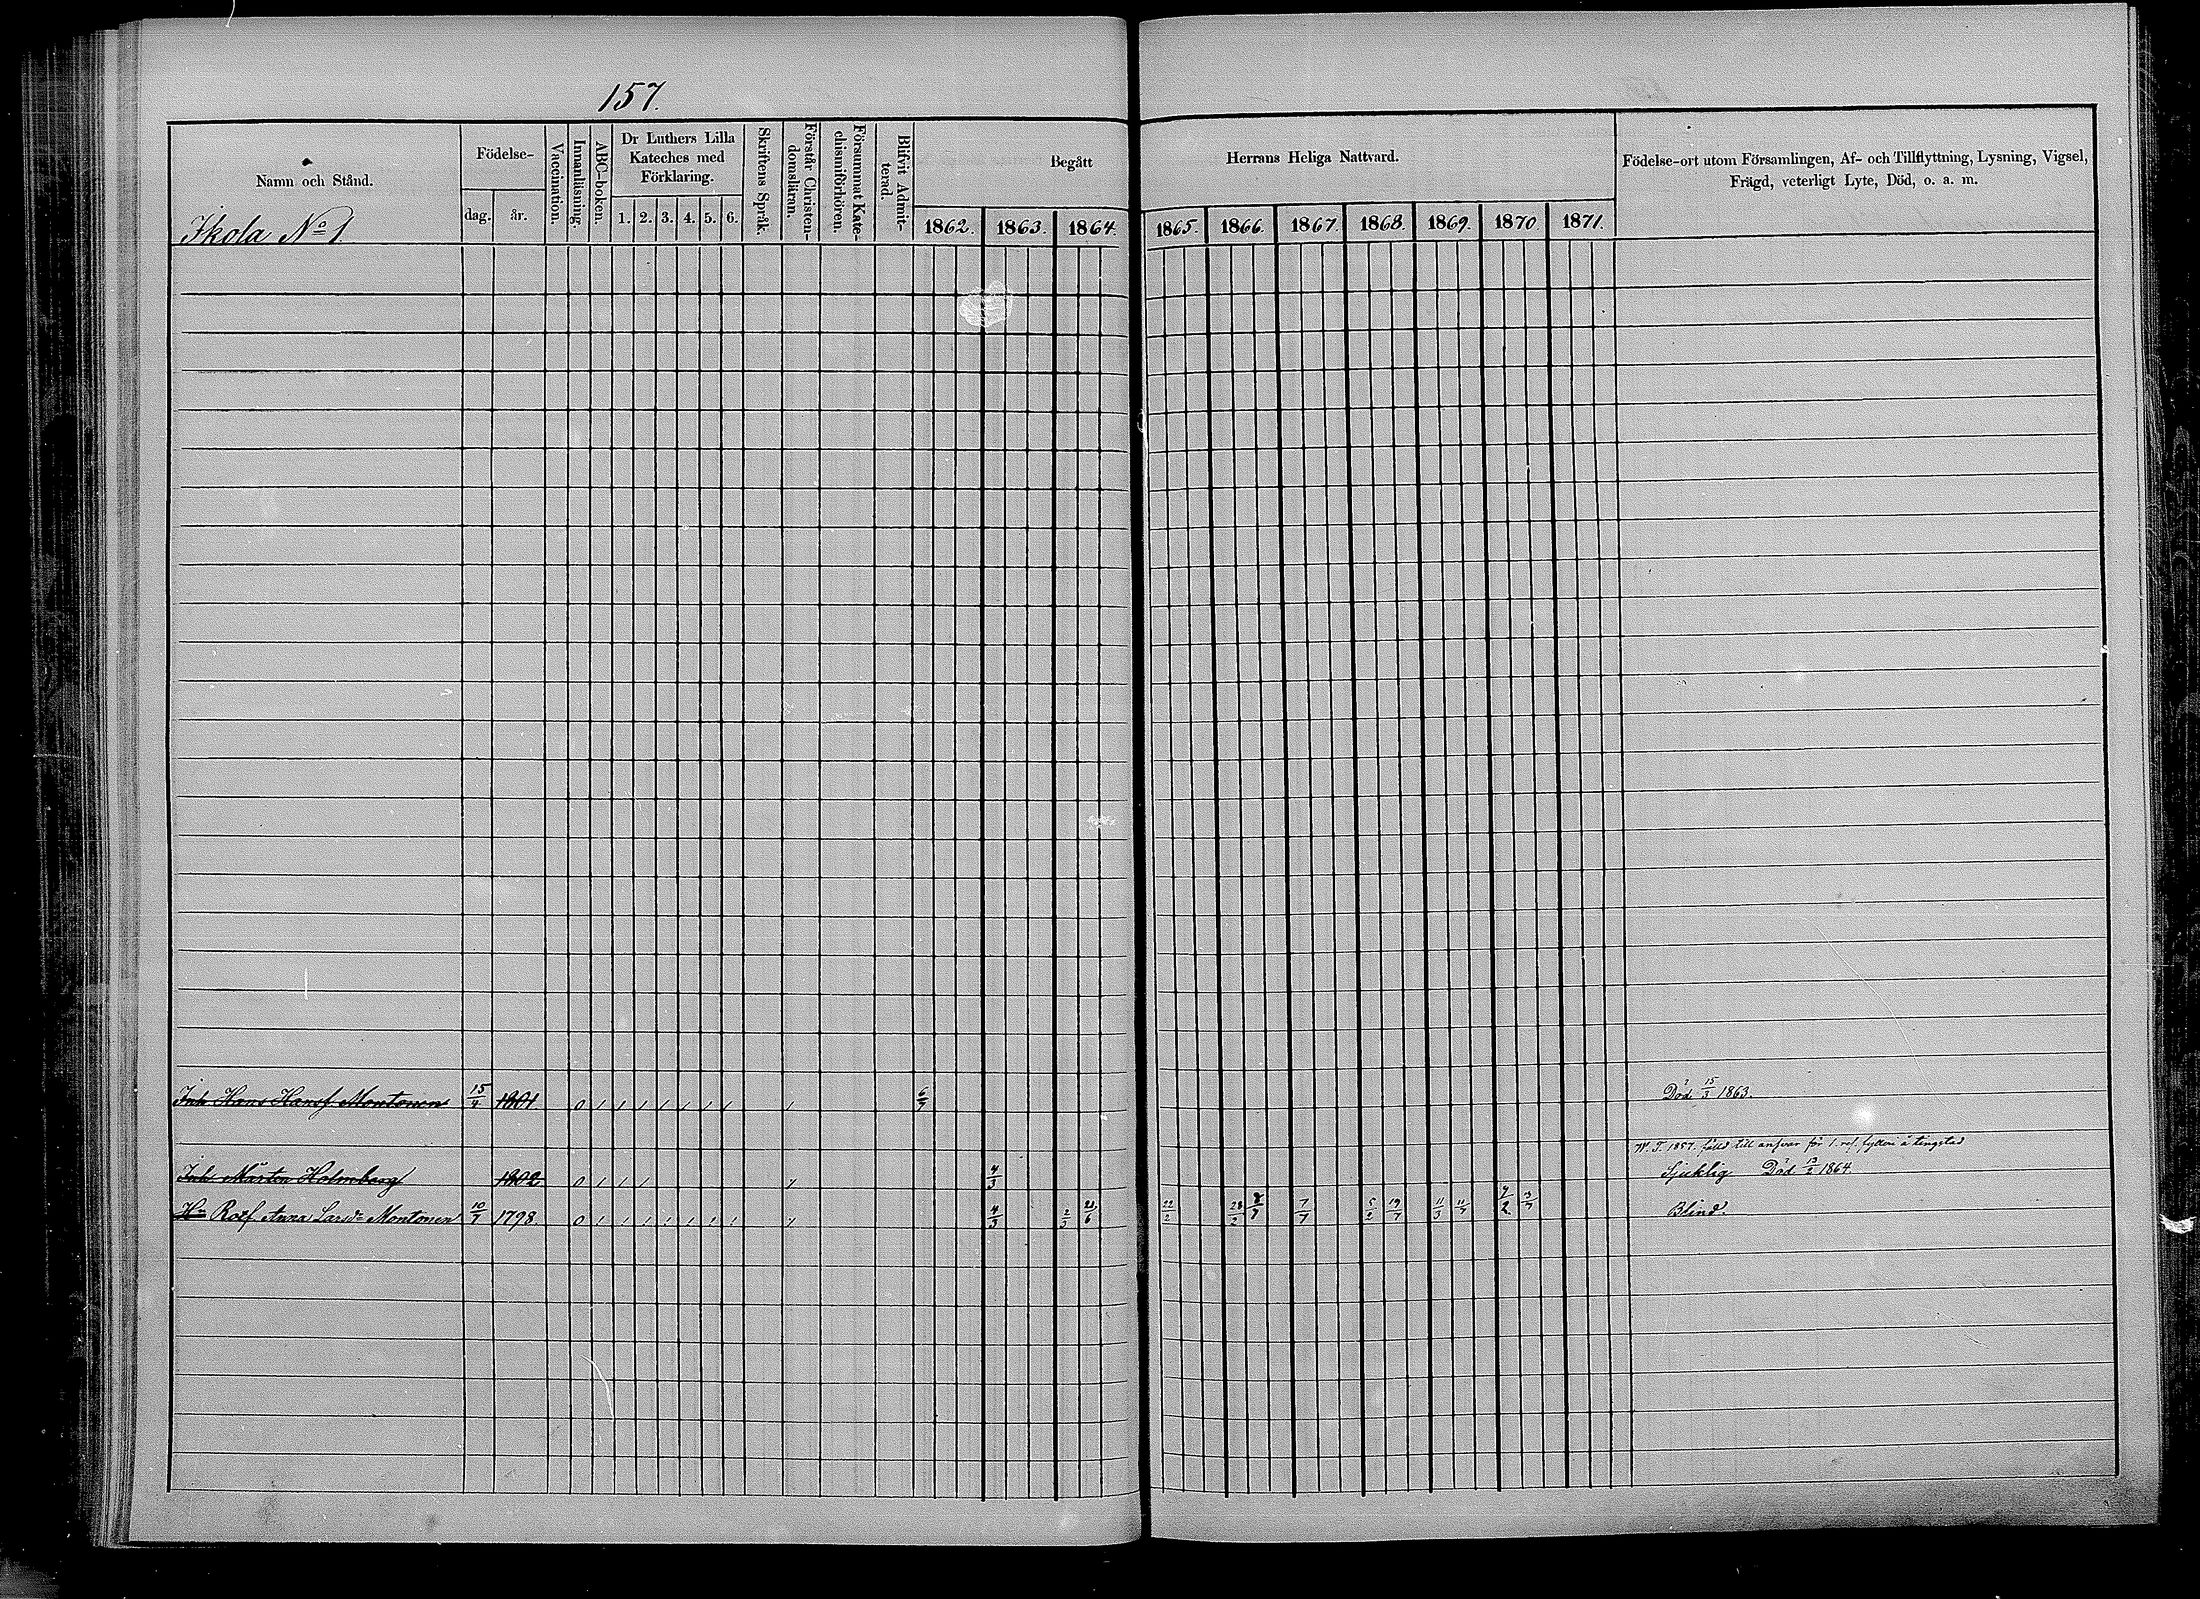 157.
Namn och Stånd.
Födelse-
dag.
år.
Vaccination.
Innanläsning.
ABC-boken.
Dr Luthers Lilla
Kateches med
Förklaring.
1. 2. 3. 4. 5. 6.
Skriftens Språk.
Förstår Christen-
domsläran.
Försummat Kate-
chismiförhören.
Blifvit Admit-
terad.
Begått
Herrans Heliga Nattvard.
1862. 1863. 1864. 1865. 1866. 1867. 1868. 1869. 1870. 1871.
Födelse-ort utom Församlingen, Af- och Tillflyttning, Lysning, Vigsel,
Frägd, veterligt Lyte, Död, o. a. m.
Ikola No 1
Inh Hans Hansf Montonen 15/2 1801 0 6/7 Död 15/3 1863.
W. T. 1857. fälld till ansvar för 1. res. å tingstad
Inh Mårten Holmberg 1802 0 4/3 Sjuklig Död 13/2 1864.
Hu Rotf Anna Larsdr Montonen 10/7 1798 0 4/3 2/3 21/6 22/2 28/2 7/7 5/2 19/7 11/3 11/7 Blind.